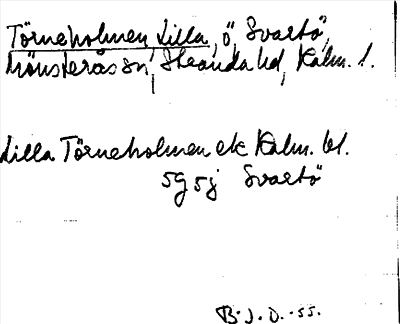 Törneholmen, Lilla, ö, Svartö,
Mönsterås sn, Stranda hd, Kalm. l.
Lilla Törneholmen ek Kalm. bl.
5g 5j Svartö
B.J.D. -55.